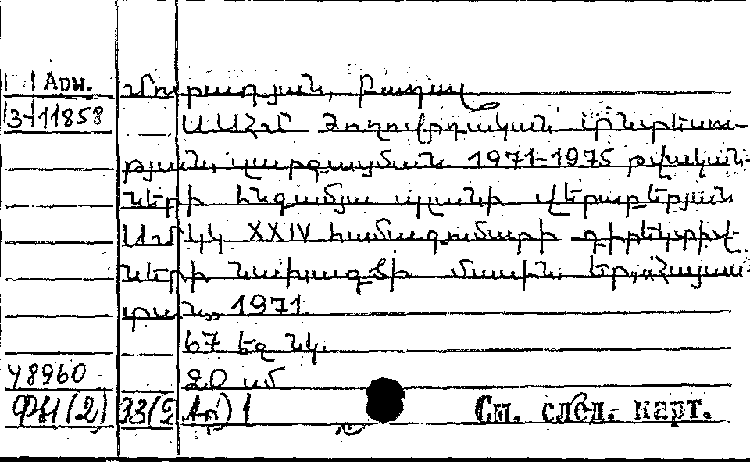 1 Арм.
Մուրադյան, Բաղալ
3-11858
ՍՍՀՄ ժողովրդական տնտեսու-
թյան զարգացման 1971-1975 թվական-
ների հնգամյա պլանի վերաբերյալ
ՍՄԿԿ XXIV համագումարի դիրեկտիվ-
ների նախագծի մասին. Եր., «Հայաս-
տան», 1971.
67 եզ նկ.
48960
20 սմ
ФН (2) 33(2 Ар) 1
См. след. карт.